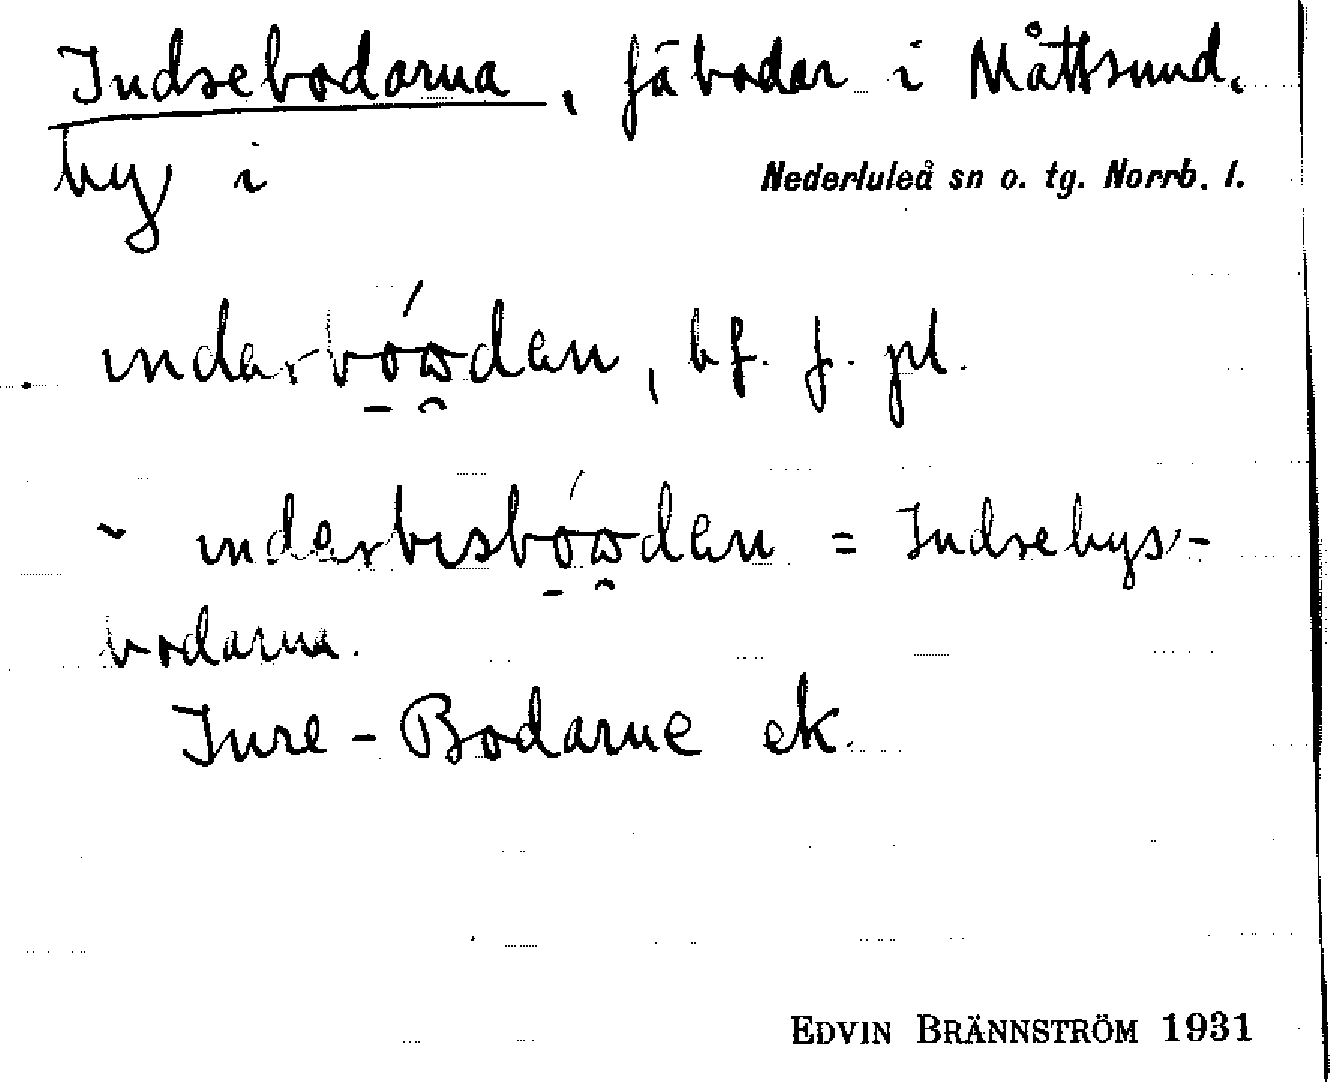 Indrebodarna, fäbodar i Måttsund,
by i Nederluleå sn o. tg. Norrb. l.
ındarbóωdan, bf. f. pl.
~ ındarbısbóωdan = Indrebys-
bodarna.
Inre-Bodarne ek.
EDVIN BRÄNNSTRÖM 1931